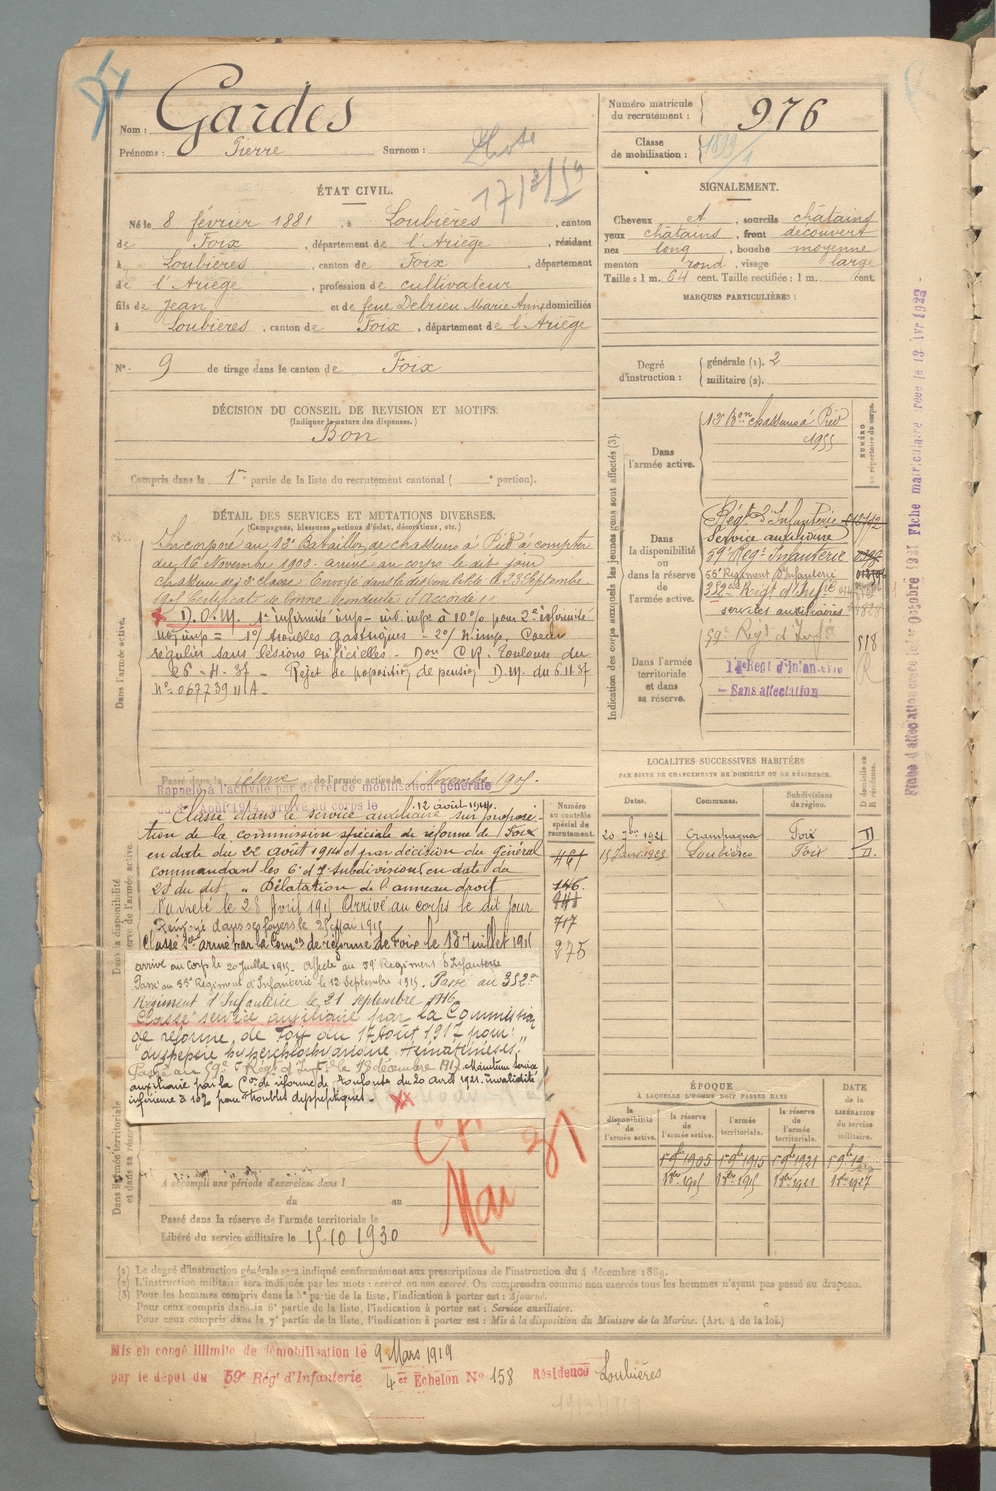 Gardes
Nom :
Prénoms : Pierre Surnom :
Numéro matricule
du recrutement : 976
Classe
de mobilisation : 1899
ÉTAT CIVIL.
Né le 8 février 1881, à Loubières, canton
de Foix, département de l'Ariège, résidant
à Loubières, canton de Foix, département
de l'Ariège, profession de cultivateur
fils de Jean et de feue Debrieu Marie Anne domiciliés
à Loubières, canton de Foix, département de l'Ariège
N° 9 de tirage dans le canton de Foix
SIGNALEMENT.
Cheveux et, sourcils châtains
yeux châtains, front découvert
nez long, bouche moyenne
menton rond, visage large
Taille : 1 m. 64 cent. Taille rectifiée : 1 m. cent.
MARQUES PARTICULIÈRES :
Degré
d'instruction :
générale (1). 2
militaire (2).
DÉCISION DU CONSEIL DE REVISION ET MOTIFS.
(Indiquer la nature des dispenses.)
Bon
Compris dans la 1re partie de la liste du recrutement cantonal ( e portion).
DÉTAIL DES SERVICES ET MUTATIONS DIVERSES.
(Campagnes, blessures, actions d'éclat, décorations, etc.)
Dans l'armée active.
Incorporé au 13e Bataillon de chasseurs à Pied à compter
du 16 novembre 1903. arrivé au corps le dit jour
chasseur de 2e classe Envoyé dans la disponibilité le 23 Septembre
1905 Certificat de bonne conduite "Accordé"
D.O.M. 1e infirmité imp- inf. infre à 10% pour 2e infirmité
non imp = 1°/ troubles gastriques - 2°/ n. imp. Coeur
régulier sans lésions orificielles - Don C.R. Toulouse du
26-4-37 - Rejet de proposition de pension D.M. du 6.11.37
N° 067739 11A-
Passé dans la réserve de l'armée active le 1 Novembre 1905.
Rappelé à l'activité par décret de mobilisation générale
du 1er Août 1914, arrivé au corps le 12 août 1914.
Classé dans le service auxiliaire sur proposi-
tion de la commission spéciale de réforme de Foix
en date du 22 août 1914 et par décision du Général
commandant les 6e et 7e subdivisions en date du
23 du dit. " Dilatation de l'anneau droit
arrivé au corps le dit jour
Renvoyé dans ses foyers le
Classé Sce armé par la Comon de réforme de Foix le 13 Juillet 1915
arrivé au Corps le 20 Juillet 1915. Affecté au 59e Régiment d'Infanterie
Passé au 55e Régiment d'Infanterie le 12 Septembre 1915. Passé au 352e
Régiment d'Infanterie le 21 septembre 1916
Classé service auxiliaire par la Commission
de réforme de Foix du 17 Août 1917 pour :
dyspepsie hyperchlorhydrique. Hématémèses."
Passé au 59e Régt d'Infie le 13 décembre 1917. Maintenu service
auxiliaire par la Con de réforme de Toulouse du 20 avril 1921. invalidité
inférieure à 10% pour "troubles dyspeptiques".
Mai 31
A accompli une période d'exercices dans l
du au
Passé dans la réserve de l'armée territoriale le
Libéré du service militaire le 15.10 1930
Indication des corps auxquels les jeunes gens sont affectés (3).
Dans
l'armée active.
13e Bon chasseurs à Pied
1955
NUMÉRO
au répertoire du corps.
Dans
la disponibilité
ou
dans la réserve
de
l'armée active.
Régt d'Infanterie
Service auxiliaire
59e Régt Infanterie
55e Régiment d'Infanterie
352e Régt d'Infie
services auxiliaires
Dans l'armée
territoriale
et dans
sa réserve.
59e Régt d'Infie 518
14e Régt d'Infanterie
- Sans affectation
LOCALITÉS SUCCESSIVES HABITÉES
PAR SUITE DE CHANGEMENTS DE DOMICILE OU DE RÉSIDENCE.
Dates. Communes. Subdivisions
de région.
D domicile ou
R résidence.
20 7bre 1921 Crampagna Foix D
15 Janv 1923 Loubières Foix D.
Numéro
au contrôle
spécial du
recrutement.
461
146.
717
275
ÉPOQUE
À LAQUELLE L'HOMME DOIT PASSER DANS
DATE
de la
LIBÉRATION
du service
militaire.
la
disponibilité
de
l'armée active.
la réserve
de
l'armée active.
l'armée
territoriale.
la réserve
de
l'armée
territoriale.
1905 1915 1921
(1) Le degré d'instruction générale sera indiqué conformément aux prescriptions de l'instruction du 4 décembre 1889.
(2) L'instruction militaire sera indiquée par les mots : exercé ou non exercé. On comprendra comme non exercés tous les hommes n'ayant pas passé au drapeau.
(3) Pour les hommes compris dans la 5e partie de la liste, l'indication à porter est : Ajourné.
Pour ceux compris dans la 6e partie de la liste, l'indication à porter est : Service auxiliaire.
Pour ceux compris dans la 7e partie de la liste, l'indication à porter est : Mis à la disposition du Ministre de la Marine. (Art. 4 de la loi.)
Mis en congé illimité de démobilisation le 9 Mars 1919
par le dépôt du 59e Régt d'Infanterie 4er Echelon N° 158 Résidence Loubières